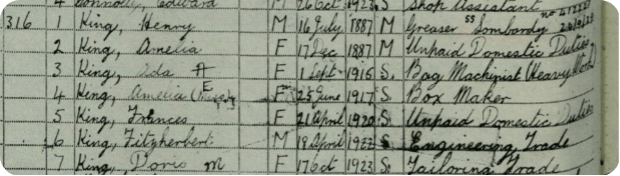 4 Connolly, Edward M 26 Oct 1923 S Shop Assistant
316 1 King, Henry M 16 July 1887 M Greaser SS Lombardy
2 King, Amelia F 17 Dec 1887 M Unpaid Domestic Duties
3 King, Ida A F 1 Sept 1915 S. Bag Machinist Heavy
4 King, Amelia E F 23 June 1917 S. Box Maker
5 King, Frances F 21 April 1920 S. Unpaid Domestic Duties
6 King, Fitzherbert M 18 April 1922 S Engineering Trade
7 King, Doris M F 17 Oct 1923 S. Tailoring Trade